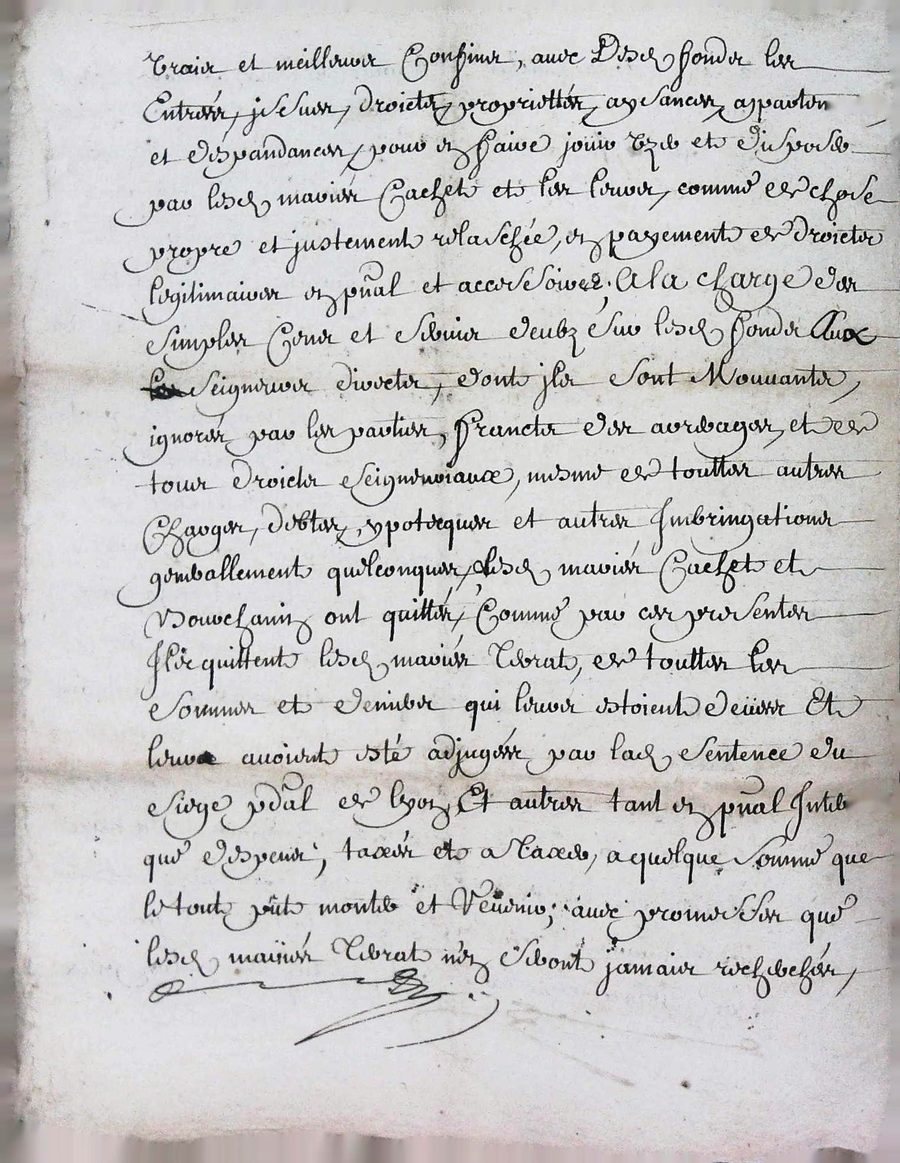 vrais et meilleurs Confins, avec Lesd fonds les
Entrées, issues, droicts, proprietés, aysances, apparten
et despandances, pour en faire jouir Uzer et disposer
par lesd mariés Cachet et les leurs, comme de chose
propre et justement relaschée, en payement de droicts
legitimaires en pñal et accessoires. A la charge des
simples Cens et servis deubz sur lesd fonds Aux
Seigneurs directs, dont ils sont Mouvants,
ignorés par les parties, francts des arrerages, et de
tous droicts seigneuriaux, mesme de touttes autres
Charges, debtes, ypotecques et autres Imbringations
generallement quelconques, lesd mariés Cachet et
ont quittés, Comme par ces presentes
Ils quittent lesd mariés Terrat, de touttes les
sommes et deniers qui leurs estoient deües Et
leurs avoient esté adjugées par lad sentence du
siege pdal de lyon, Et autres tant en pñal Inte
que despens, taxés et a taxer, a quelque somme que
le tout pût monter et revenir; avec promesses que
lesd mariés Terrat n'en seront jamais recherchés,